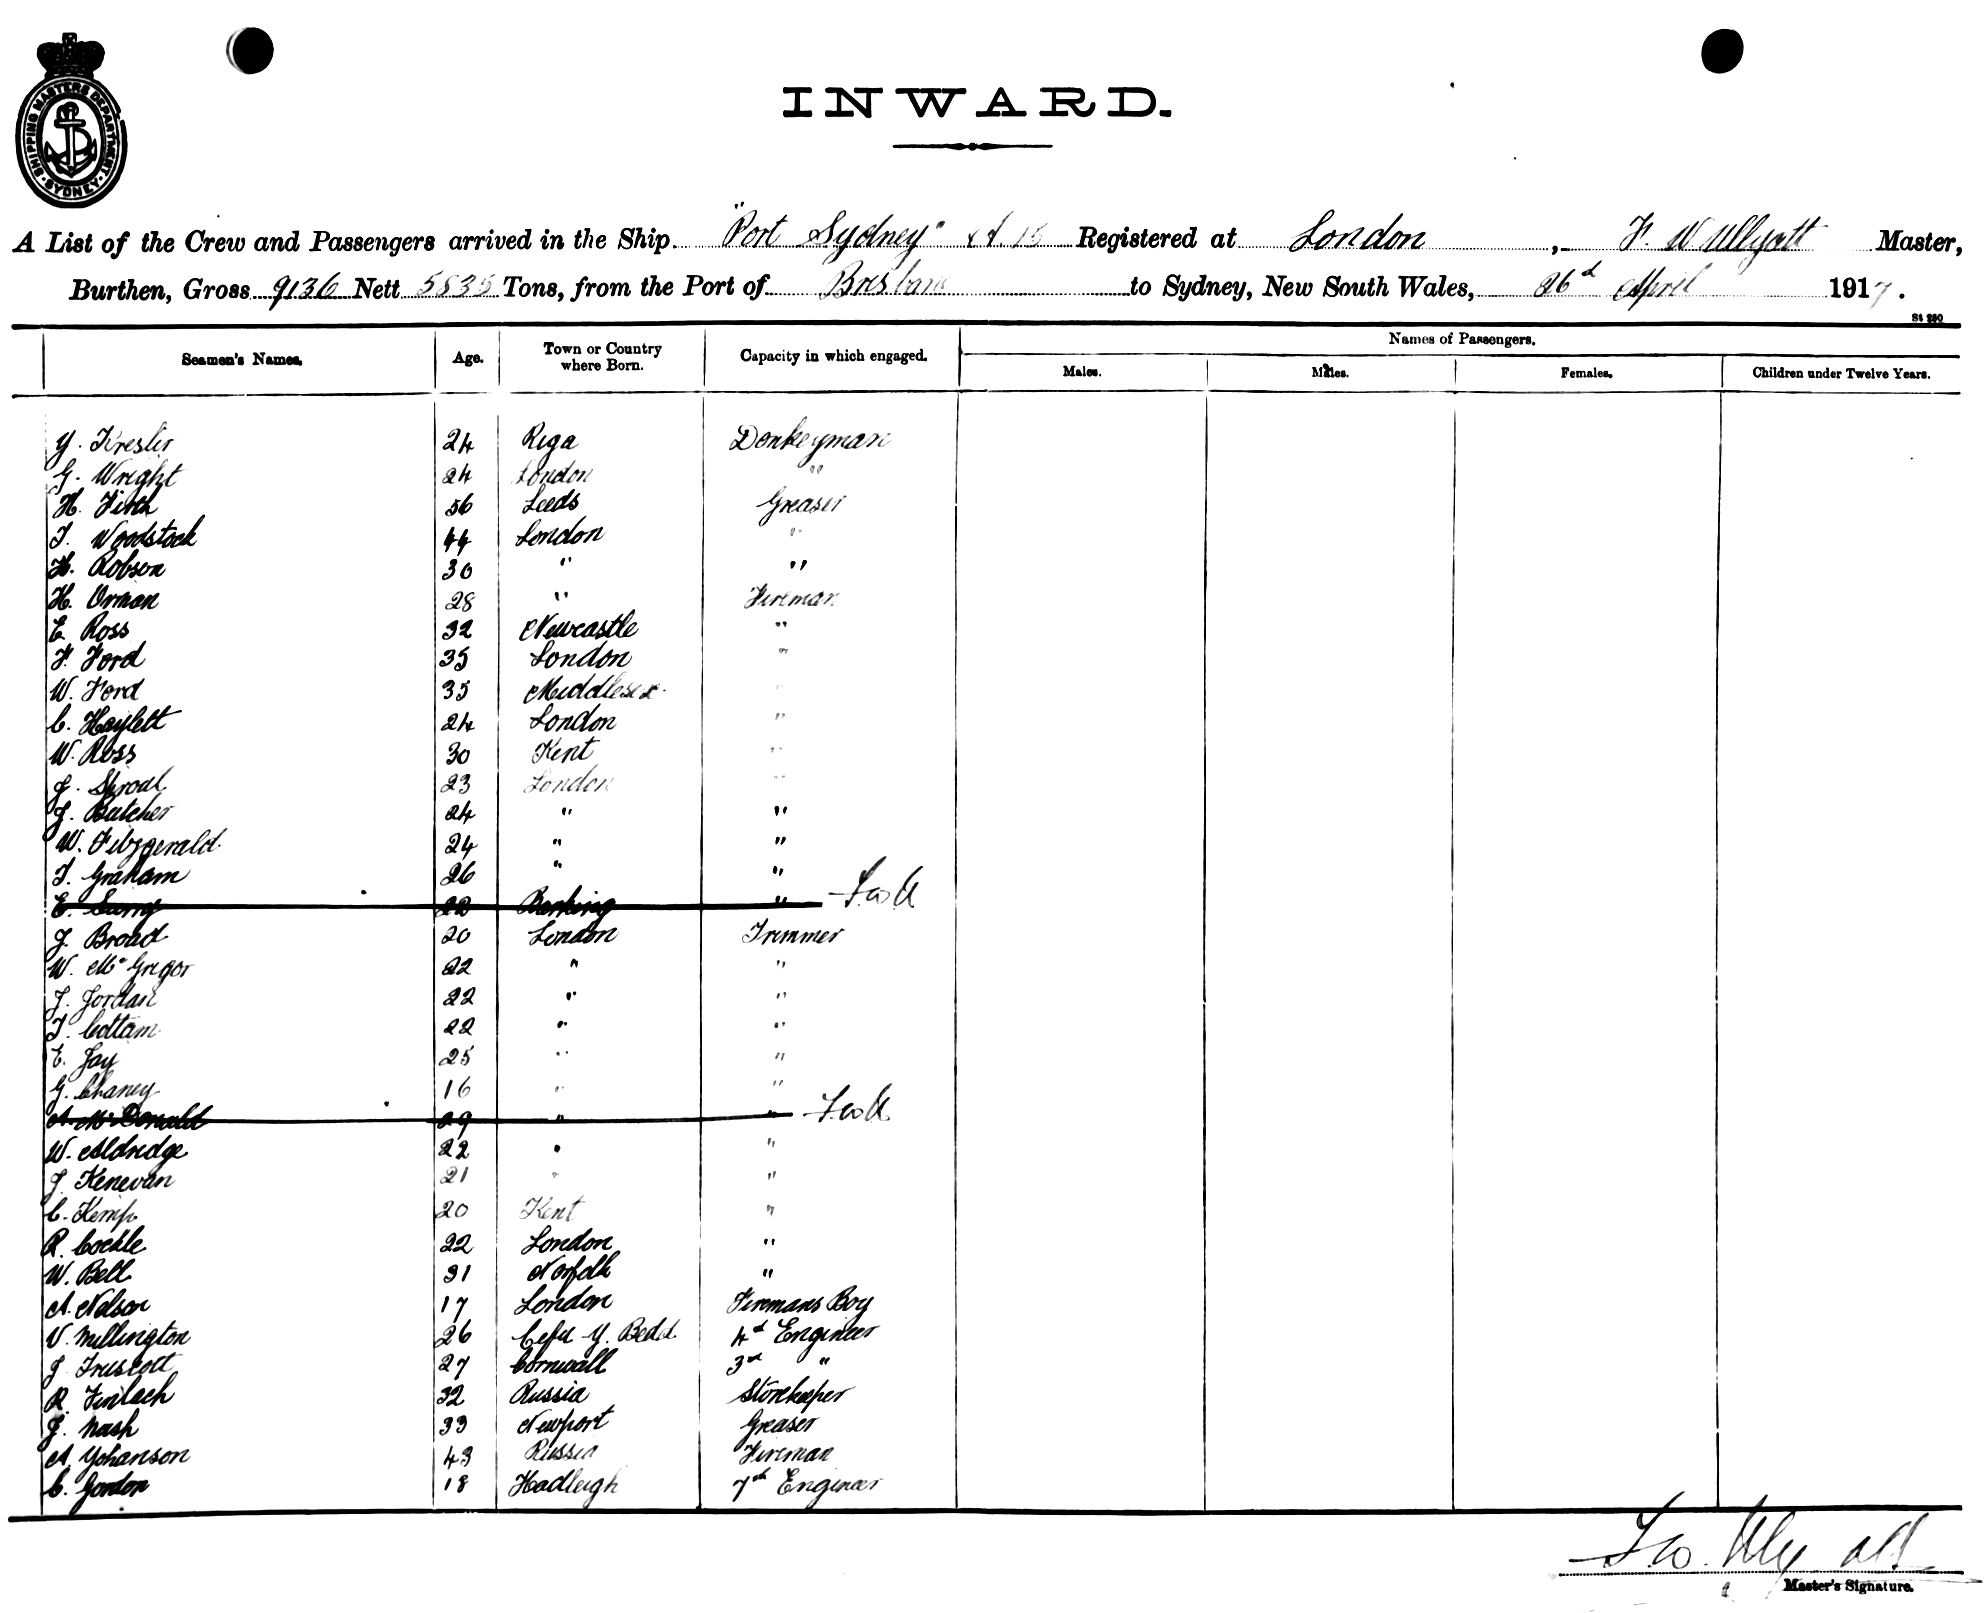 SHIPPING MASTERS DEPARTMENT. SYDNEY.
INWARD.
A List of the Crew and Passengers arrived in the Ship "Port Sydney" Registered at London, F. W Ullyatt Master,
Burthen, Gross 9136 Nett 5835 Tons, from the Port of Brisbane to Sydney, New South Wales, 26d April 1917.
St 290
Seamen's Names. Age. Town or Country where Born. Capacity in which engaged. Names of Passengers.
Males. Males. Females. Children under Twelve Years.
Y. Kreslir 24 Riga Donkeyman
G. Wright 24 London "
H. Firth 56 Leeds Greaser
T. Woodstock 44 London "
H. Robson 30 " "
H. Orman 28 " Fireman
E. Ross 32 Newcastle "
F. Ford 35 London "
W. Ford 35 Middlesex "
C. Haylett 24 London "
W. Ross 30 Kent "
J. Sproal 23 London "
J. Butcher 24 " "
W. Fitzgerald 24 " "
T. Graham 26 " "
E. 22 Barking "
J. Broad 20 London Trimmer
W. McGregor 22 " "
J. Jordan 22 " "
T. Cottam 22 " "
E. Jay 25 " "
G. Chaney 16 " "
A. McDonald 29 " "
W. Aldredge 22 " "
J. Kenevan 21 " "
C. Kemp 20 Kent "
R. Cockle 22 London "
W. Bell 31 Norfolk "
A. Nelson 17 London Firemans Boy
V. Millington 26 Cefn Y. Bedd 4th Engineer
J. Truscott 27 Cornwall 3rd "
R. Finlach 32 Russia Storekeeper
J. Nash 33 Newport Greaser
A. Yohanson 43 Russia Fireman
C. Gordon 18 Hadleigh 7th Engineer
F. W. Ullyatt
Master's Signature.